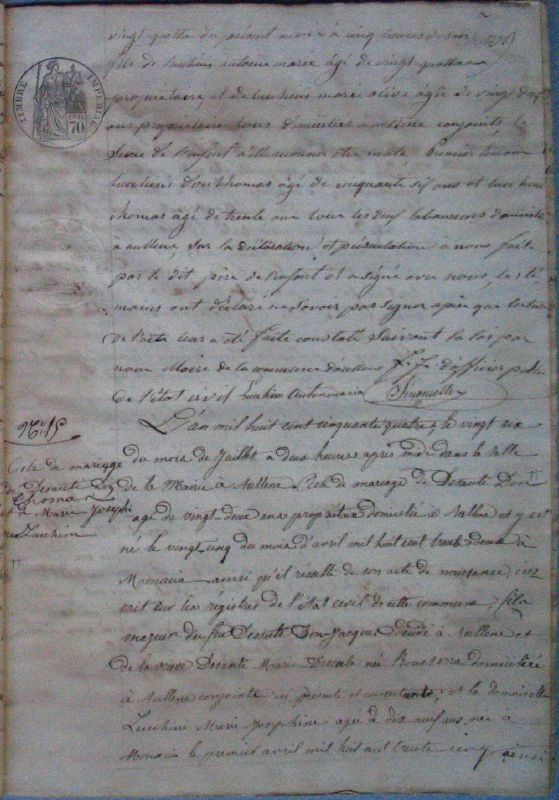 TIMBRE IMPERIAL
70
vingt quatre du présent à cinq heures du soir
fils de Lucchini antoine marie âgé de vingt quatre ans
propriétaire, et de Lucchini marie âgée de vingt
ans propriétaire tous domiciliés à aullene conjoints, le
de l'enfant a été reconnu être Premier temoin
Lucchini Don thomas âgé de cinquante six ans et Lucchini
thomas âgé de trente ans tous les deux laboureurs domiciliés
à aullene, sur la déclaration et présentation à nous faite
par le dit père de l'enfant et a signé avec nous, les té
moins ont déclaré ne savoir pas signer après que lecture
de l'acte leur a été faite constaté suivant la loi par
nous Maire de la commune d'aullene f.f. d'officier public
de l'état civil Lucchini Antoine marie
N° 15
Acte de mariage
de Desanti Don
Thomas
et de Marie Josephi
ne Lucchini
L'an mil huit cent cinquante quatre, le vingt six
du mois de Juillet à deux heures après midi dans la salle
de la Mairie à Aullene. Acte de mariage de Desanti Don
âgé de vingt deux ans propriétaire domicilié à Aullene et y est
né le vingt cinq du mois d'avril mil huit cent trente deux à
Monacia ainsi qu'il résulte de son acte de naissance ins
crit sur les régistres de l'état civil de cette commune, fils
majeur du feu Desanti Don Jacques décédé à Aullene et
de la veuve Desanti Marie née domiciliée
à Aullene conjointe ici présente et consentante, et la demoiselle
Lucchini Marie Josephine agée de dix neuf ans, née à
Monacia le premier avril mil huit cent trente cinq ainsi